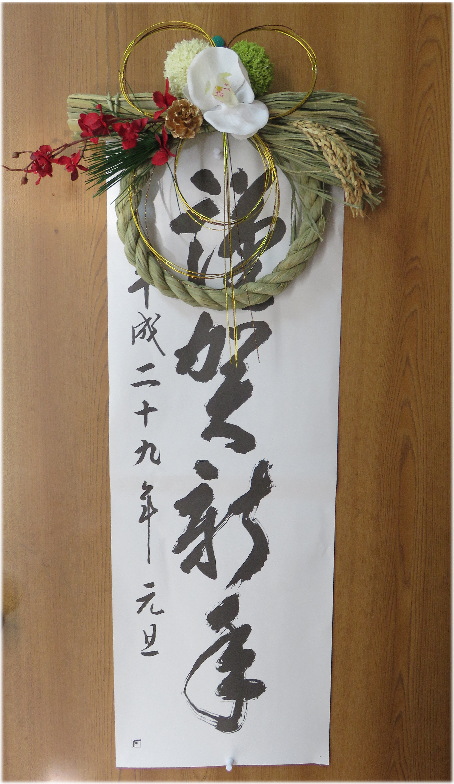 謹賀新年
平成二十九年 元旦